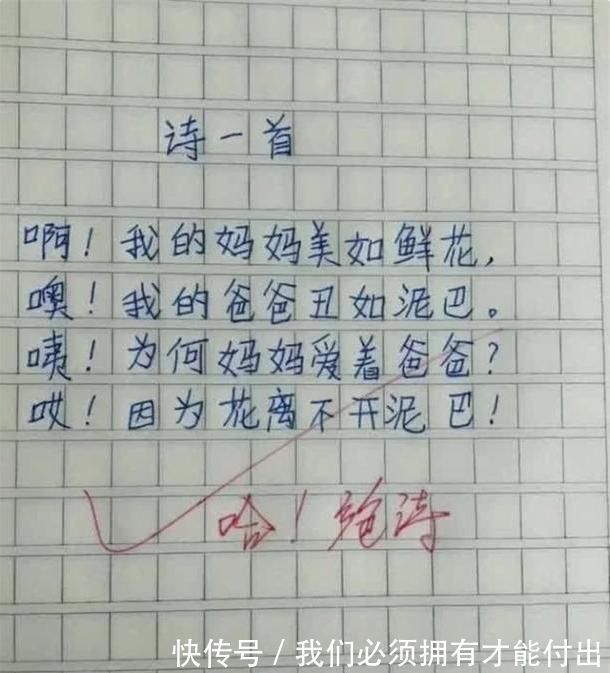 诗一首
啊！我的妈妈美如鲜花，
噢！我的爸爸丑如泥巴。
咦！为何妈妈爱着爸爸？
哎！因为花离不开泥巴！
哈！绝诗
快传号 / 我们必须拥有才能付出